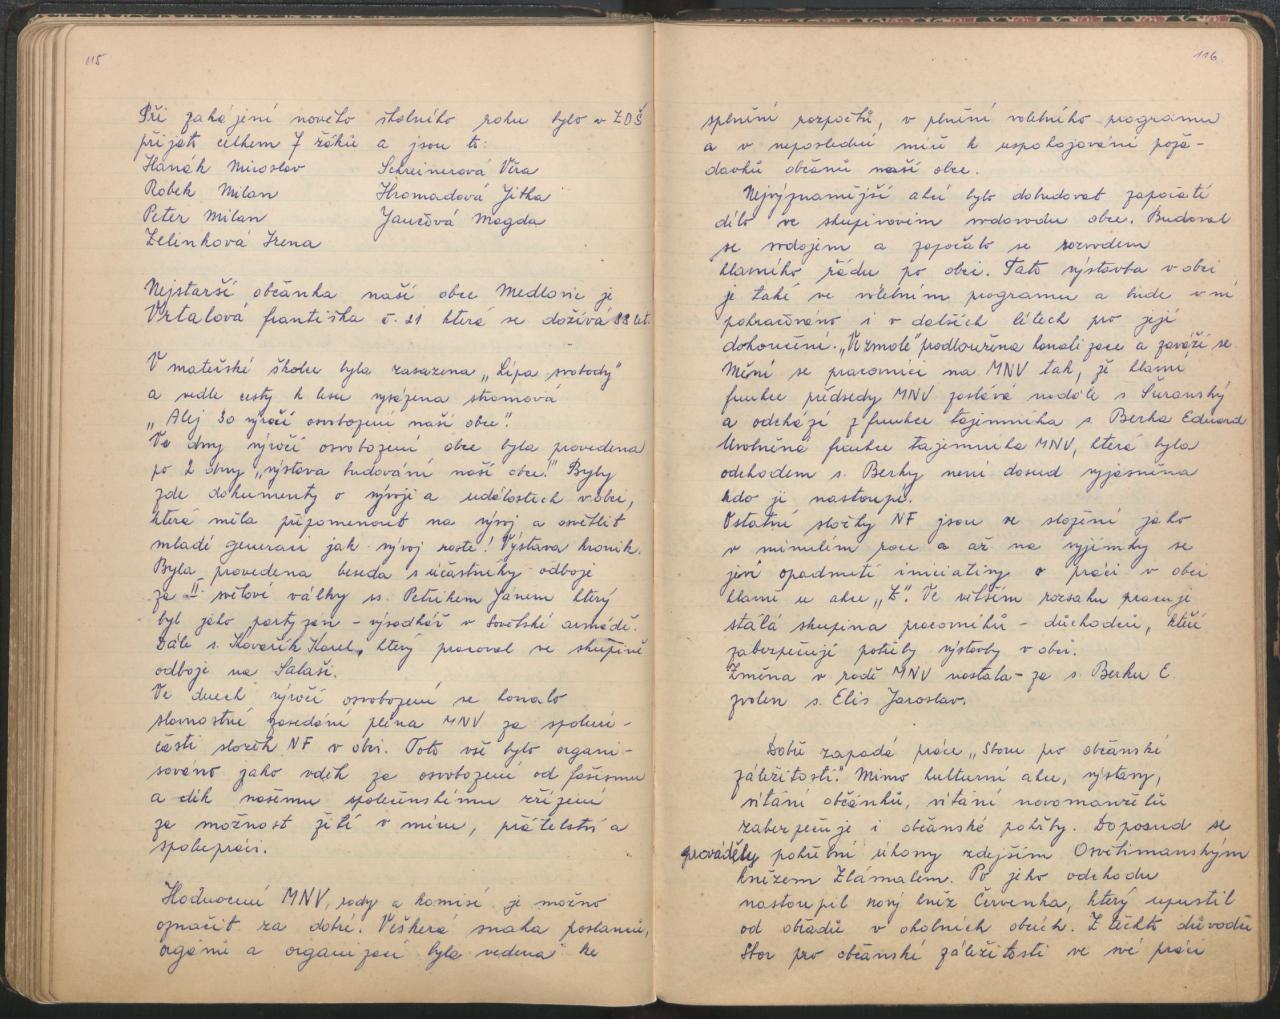 115
Při zahájení nového školního roku bylo v ZDŠ
přijato celkem 7 žáků a jsou to:
Hanák Miroslav Schreinerová Věra
Robek Milan Hromadová Jitka
Peter Milan Jančová Magda
Zelinková Irena
Nejstarší občanka naší obce Medlovic je
Vrtalová Františka č. 21 která se dožívá 88 let.
V mateřské školce byla zasazena „Lípa svobody"
a vedle cesty k lesu vysázena stromová
„Alej 30 výročí osvobození naší obce".
Ve dny výročí osvobození obce byla provedena
po 2 dny „výstava budování naší obce." Byly
zde dokumenty o vývoji a událostech v obci,
která měla připomenout na vývoj a osvětlit
mladé generaci jak vývoj roste! Výstava kronik.
Byla provedena beseda s účastníky odboje
za II. světové války ss. Petříkem Jánem který
byl jako partyzan - výsadkář v Sovětské armádě.
Dále s. Kovařík Karel, který pracoval ve skupině
odboje na Salaši.
Ve dnech výročí osvobození se konalo
slavnostní zasedání pléna MNV za spolu-
části složek NF v obci. Toto vše bylo organi-
sováno jako vděk za osvobození od fašismu
a dík našemu společenskému zřízení
za možnost žití v míru, přátelství a
spolupráci.
Hodnocení MNV, rady a komisí je možno
označit za dobré. Veškerá snaha poslanců,
orgánů a organizací byla vedena ke
116
splnění rozpočtů, v plnění volebního programu
a v neposlední míře k uspokojování poža-
davků občanů naší obce.
Nejvýznamnější akcí bylo dobudovat započaté
dílo ve skupinovém vodovodu obce. Budoval
se vodojem a započalo se rozvodem
hlavního řádu po obci. Tato výstavba v obci
je také ve volebním programu a bude v ní
pokračováno i v dalších létech pro její
dokončení. „Ve žmole" prodloužena kanalizace a zaváží se.
Mění se pracovníci na MNV tak, že hlavní
funkce předsedy MNV zůstává nadále s. Šuranský
a odchází z funkce tajemníka s. Berka Eduard
Uvolněná funkce tajemníka MNV, která byla
odchodem s. Berky není dosud vyjasněna
kdo ji nastoupí.
Ostatní složky NF jsou ve složení jako
v minulém roce a až na vyjímky se
jeví opadnutí iniciativy o práci v obci
hlavně u akce „Z". Ve větším rozsahu pracuje
stálá skupina pracovníků - důchodců, kteří
zabezpečují potřeby výstavby v obci.
Změna v radě MNV nastala - za s. Berku E.
zvolen s. Elis Jaroslav.
Dobře zapadá práce „Sboru pro občanské
záležitosti." Mimo kulturní akce, výstavy,
vítání občánků, vítání novomanželů
zabezpečuje i občanské pohřby. Doposud se
prováděly pohřební úkony zdejším Osvětimanským
knězem Zlámalem. Po jeho odchodu
nastoupil nový kněz Červenka, který upustil
od obřadů v okolních obcích. Z těchto důvodů
Sbor pro občanské záležitosti ve své práci